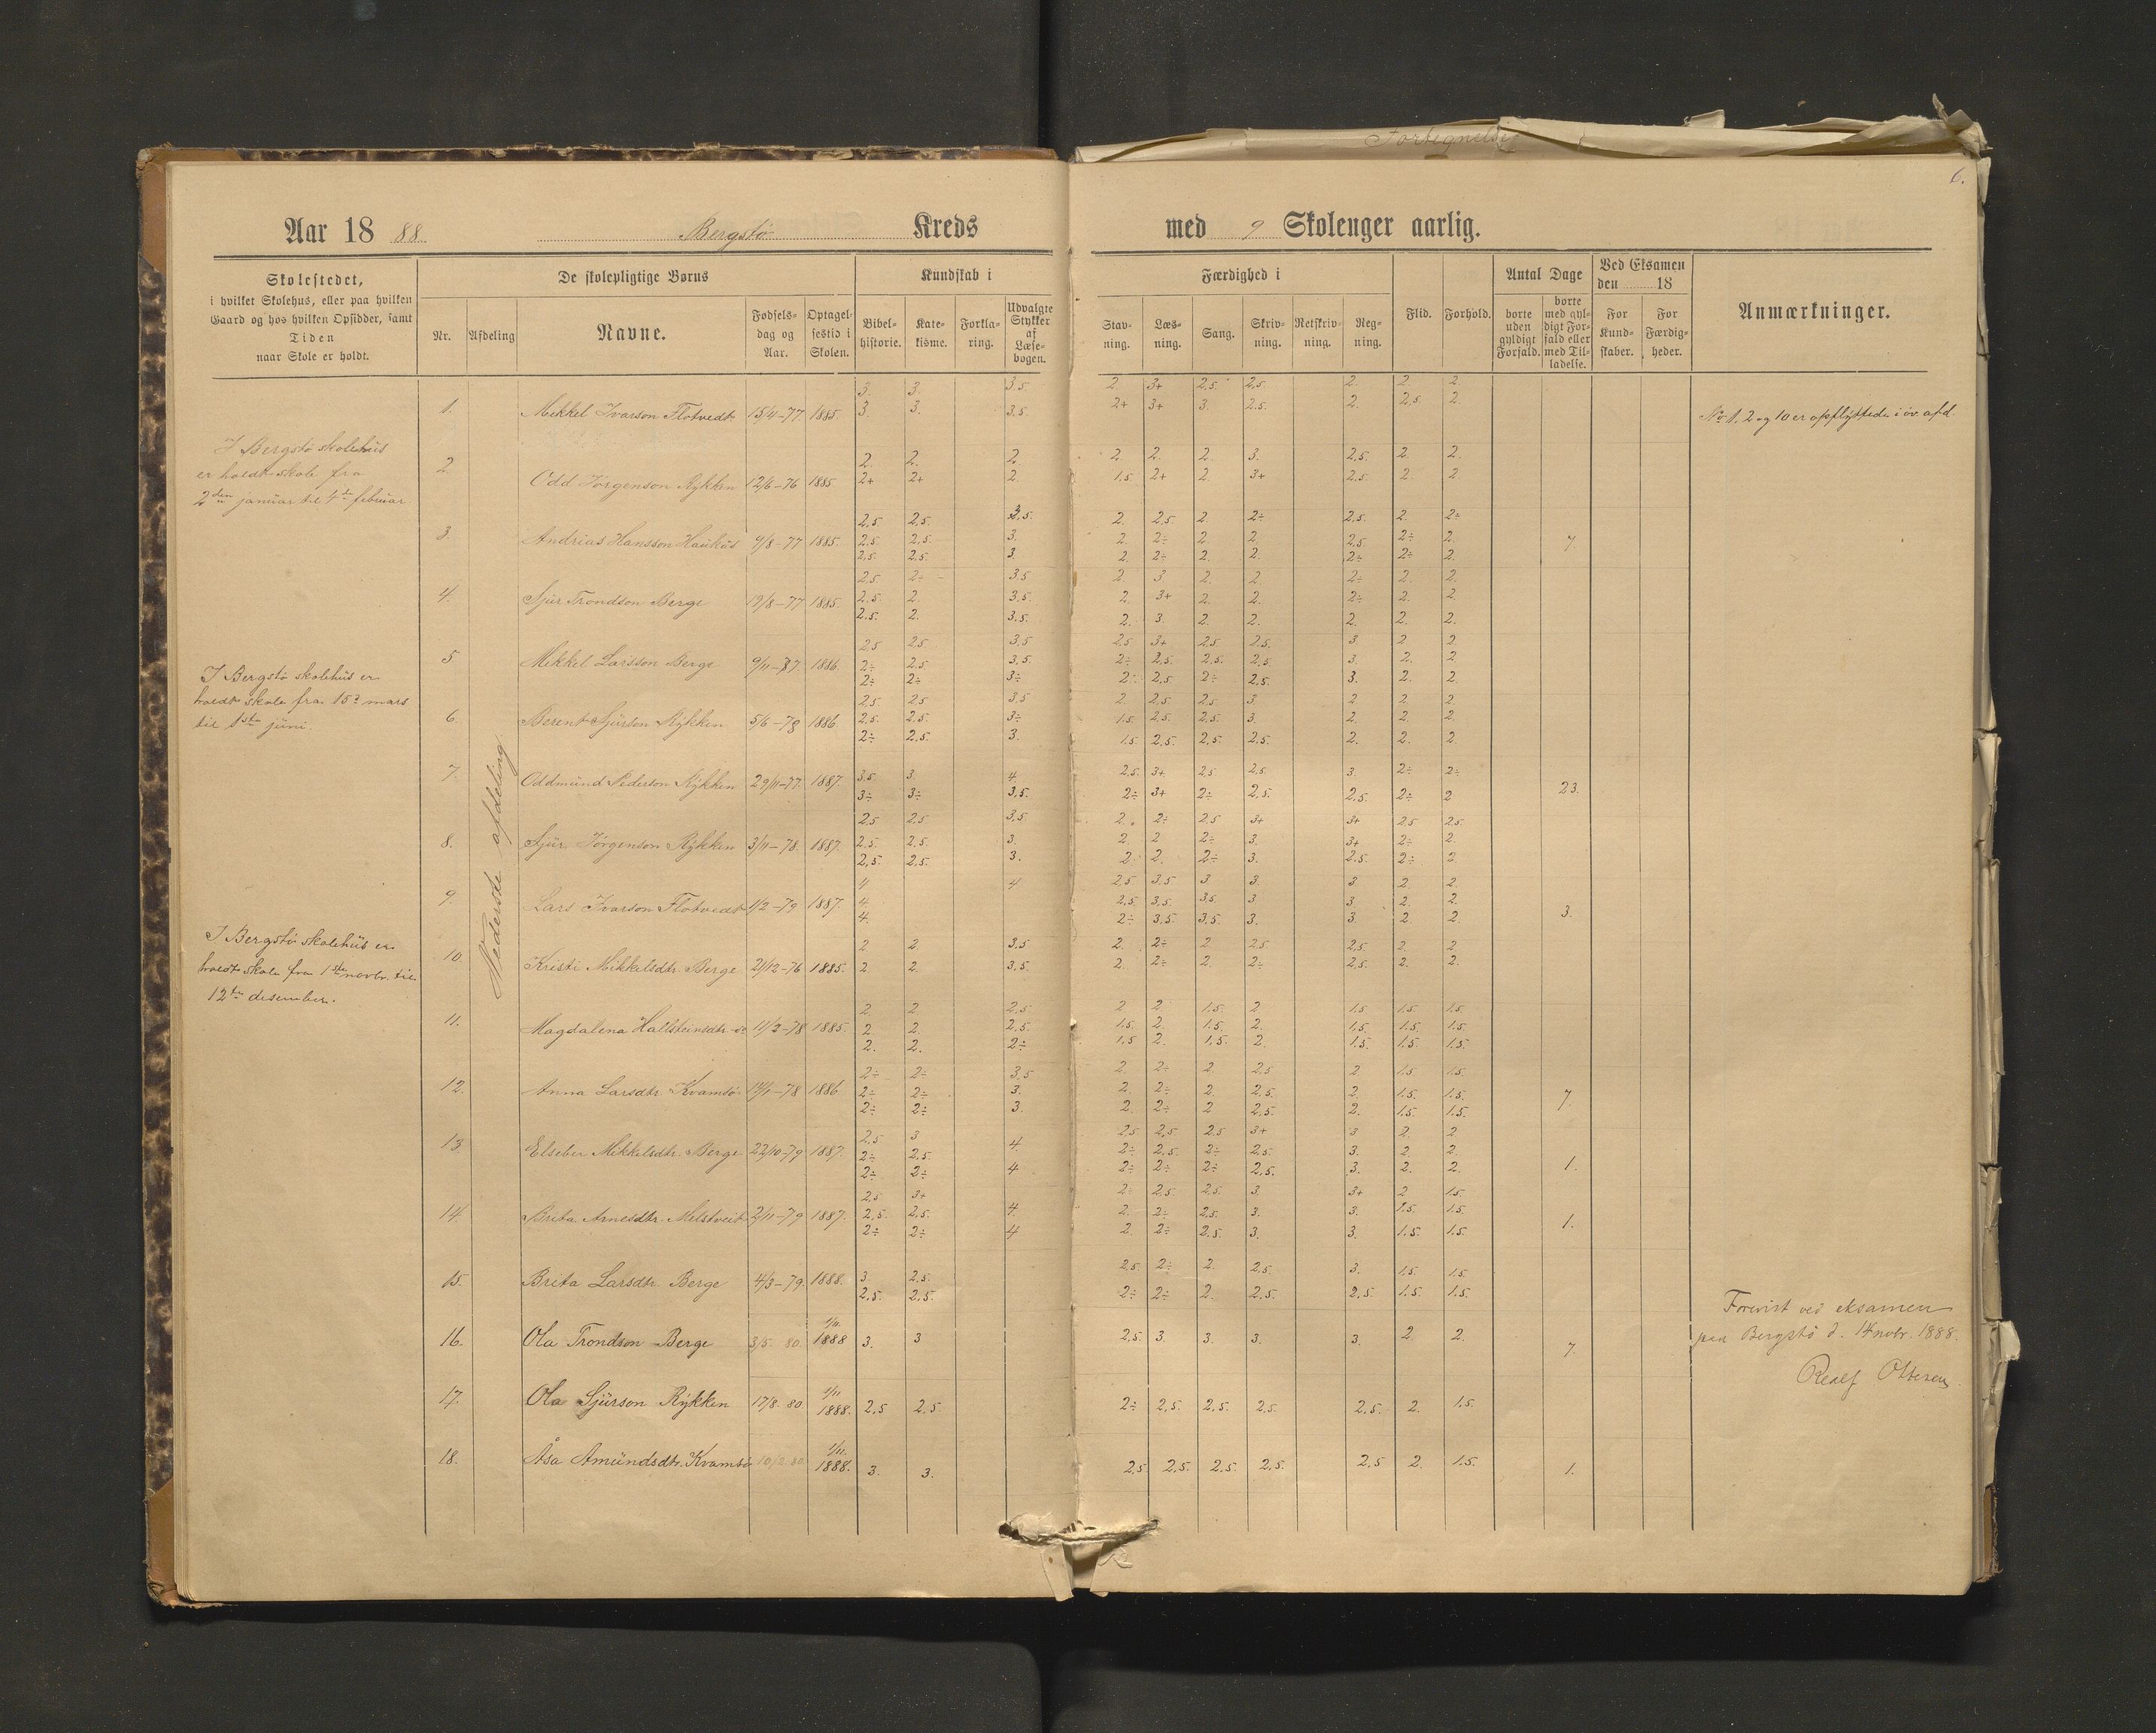 Fortegnelse
6.
Aar 1888 Bergstö Kreds med 9 Skoleuger aarlig.
Skolestedet,
i hvilket Skolehus, eller paa hvilken
Gaard og hos hvilken Opsidder, samt
Tiden
naar Skole er holdt.
De skolepligtige Børns
Nr. Afdeling Navne. Fødselsdag og Aar. Optagelsestid i Skolen.
Kundskab i
Bibelhistorie. Katekisme. Forklaring. Udvalgte Stykker af Læsebogen.
Færdighed i
Stavning. Læsning. Sang. Skrivning. Retskrivning. Regning.
Flid. Forhold.
Antal Dage
borte uden gyldigt Forfald. borte med gyldigt Forfald eller med Tilladelse.
Ved Eksamen
den 18
For Kundskaber. For Færdigheder.
Anmærkninger.
I Bergstö skolehüs
er holdt skole fra
2den januar til 4de februar
I Bergstö skolehüs er
holdt skole fra 15d mars
til 1ste jüni.
I Bergstö skolehüs er
holdt skole fra 1ste novbr. til
12te desember.
Nederste afdeling
3. 3. 3.5 2 3+ 2,5 2,5 2. 2. 2.
1. Mikkel Ivarson Flotvedt 15/4-77 1885. 3. 3. 3,5. 2+ 3+ 3. 2.5. 2. 2,5. 2. No 1, 2 og 10 er opflÿttede i öv. afd.
2. 2. 2. 2. 2. 2. 3. 2,5. 2. 2.
2. Odd Jörgenson Rÿkken 12/6-76 1885 2+ 2+ 2. 1.5. 2+ 2. 3+ 2,5 2. 2.
2,5 2,5. 3,5. 2. 2,5. 2. 2÷ 2,5. 2. 2÷
3. Andrias Hansson Haükås 9/8-77 1885. 2,5. 2,5. 3. 2. 2÷ 2. 2. 2,5. 2÷ 2. 7
2,5. 2,5. 3. 2. 2÷ 2. 2. 2÷ 2÷ 2.
2,5 2÷ 3.5 2. 3 2. 2 2÷ 2. 2.
4. Sjür Trondson Berge 19/8-77 1885. 2,5. 2. 3,5. 2. 3+ 2. 2. 2÷ 2. 2.
2,5. 2. 3,5. 2. 3. 2. 2. 2. 2. 2.
2,5 2,5 3,5 2,5 3+ 2,5 2,5. 3. 2 2
5 Mikkel Larsson Berge 9/11-77 1886. 2÷ 2,5 3,5. 2÷ 2,5. 2,5. 2,5 3. 2. 2
2÷ 2÷ 3÷ 2÷ 2,5 2÷ 2,5. 3. 2. 2.
2,5 2,5 3,5 2 2,5 2,5 3. 2 2 2
6. Berent Sjürson Rÿkken 5/6-78 1886. 2.5. 2.5. 3÷ 1.5. 2,5. 2,5. 3. 2. 2. 2.
2÷ 2.5 3. 1.5. 2,5. 2,5. 2,5. 2. 2. 2
7. Oddmünd Pederson Rÿkken 29/11-77. 1887. 3.5 3. 4. 2,5. 3+ 2,5 2,5. 3. 2÷ 2÷ 23.
3÷ 3÷ 3,5. 2÷ 3+ 2÷ 2,5. 2,5. 2÷ 2
2,5 2,5 3,5 2. 2÷ 2,5 3+ 3+ 2,5 2,5.
8. Sjür Jörgenson Rÿkken 3/11-78. 1887. 2,5. 2,5. 3. 2. 2 2÷ 3. 3+ 2÷ 2.
2,5. 2,5. 3. 2. 2. 2÷ 3. 2.5. 2÷ 2.
4 4 2,5 3.5 3 3. 3 2. 2.
9. Lars Ivarson Flotvedt 1/2-79 1887. 4. 2,5. 3,5. 3.5. 3 3. 2. 2. 3.
4. 2÷ 3,5. 3,5. 3. 3. 2. 2
2 2. 3.5 2. 2÷ 2 2,5 2,5. 2. 2
10. Kristi Mikkelsdtr. Berge 21/12-76 1885. 2. 2. 3,5. 2. 2÷ 2. 2÷ 2,5. 2. 2.
2. 2. 2,5 2 2 1.5. 2 1.5 1.5. 1.5.
11. Magdalena Hallsteinsdtr 11/2-78 1885. 2 2. 2,5. 1.5. 2. 1.5. 2. 1,5. 1.5. 1.5.
2. 2. 2÷ 1,5 2. 1,5. 2. 1.5. 1.5. 1.5.
2÷ 2÷ 3,5 2. 2÷ 2 2,5 2 1.5 1.5.
12. Anna Larsdtr. Kvamsö 1886. 2÷ 2÷ 3. 2. 2÷ 2. 2,5. 2. 1.5. 1.5. 7
2÷ 2÷ 3. 2. 2÷ 2 2,5. 2. 1.5. 1.5.
2,5 3 2,5 2,5 2,5 3+ 3 2. 2.
13. Elseber Mikkelsdtr. Berge 22/10-79 1887. 2÷ 2,5 4. 2÷ 2,5. 2÷ 2,5. 3. 2. 2. 1.
2÷ 2÷ 4 2÷ 2÷ 2÷ 2,5. 3. 2. 2.
2,5 3+ 2÷ 2,5 2,5. 3. 3+ 2 1.5.
14. Brita Arnesdtr. Melstveit 2/11-79 1887. 2,5. 2,5. 4. 2. 2÷ 2,5 3. 3. 1.5 1.5. 1.
2÷ 2÷ 4 2. 2÷ 2,5. 3. 3. 1.5. 1.5.
2,5 2÷ 2. 2,5 3. 1.5. 1.5.
15. Brita Larsdtr. Berge 4/3-79. 1888. 3. 2,5.
2,5. 2,5. 2÷ 2÷ 2. 2,5. 2,5 1.5. 1.5.
16. Ola Trondson Berge 3/5. 80. 1/11. 1888 3. 3 2,5 3. 3. 3. 3. 2. 2. 7.
17. Ola Sjürson Rÿkken 17/8. 80. 1/11 1888. 2,5 2.5 2÷ 2,5. 2,5. 2,5. 2,5. 2. 1.5.
18. Åsa Amündsdtr. Kvamsö 80. 1/11. 1888. 3. 3. 2,5 2,5. 2,5. 2,5. 2,5 2. 1.5. 1.
Forevist ved eksamen
paa Bergstö d. 14 novbr. 1888.
Ottesen